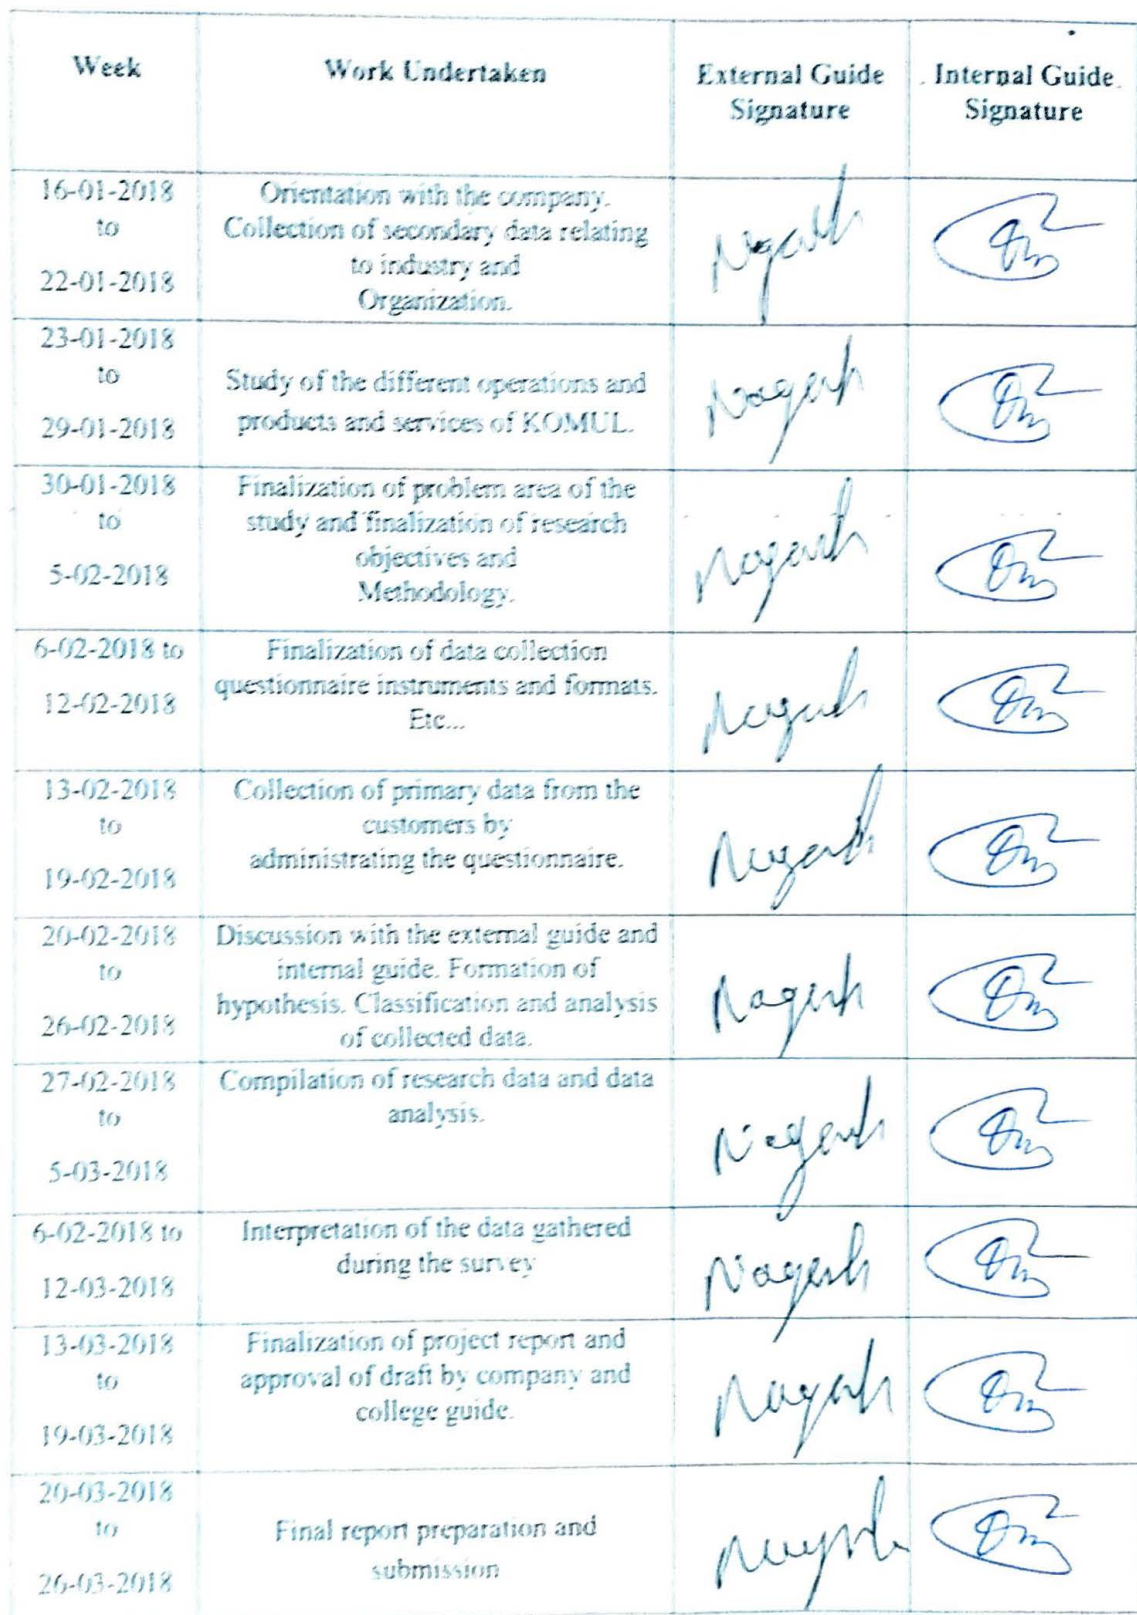 Week
Work Undertaken
External Guide
Signature
Internal Guide
Signature
16-01-2018
to
22-01-2018
Orientation with the company.
Collection of secondary data relating
to industry and
Organization.
Nagesh
23-01-2018
to
29-01-2018
Study of the different operations and
products and services of KOMUL.
Nagesh
30-01-2018
to
5-02-2018
Finalization of problem area of the
study and finalization of research
objectives and
Methodology.
Nagesh
6-02-2018 to
12-02-2018
Finalization of data collection
questionnaire instruments and formats.
Etc...
Nagesh
13-02-2018
to
19-02-2018
Collection of primary data from the
customers by
administrating the questionnaire.
Nagesh
20-02-2018
to
26-02-2018
Discussion with the external guide and
internal guide. Formation of
hypothesis. Classification and analysis
of collected data.
Nagesh
27-02-2018
to
5-03-2018
Compilation of research data and data
analysis.
Nagesh
6-02-2018 to
12-03-2018
Interpretation of the data gathered
during the survey
Nagesh
13-03-2018
to
19-03-2018
Finalization of project report and
approval of draft by company and
college guide.
Nagesh
20-03-2018
to
26-03-2018
Final report preparation and
submission
Nagesh